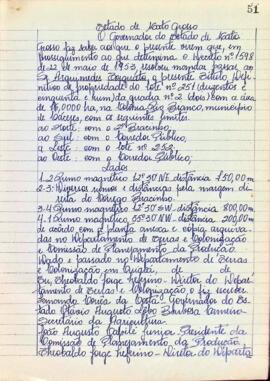 51
Estado de Mato Grosso
O Governador do Estado de Mato
Grosso faz saber aos que o presente virem que, em
prosseguimento ao que determina o Decreto nº 1598
de 22 de maio de 1953, resolveu mandar passar ao
Sr. o presente Titulo Defi-
nitivo de propriedade do lote nº 251 (duzentos e
cinquenta e hum) da quadra nº 2 (dois) com a área
de 16,0000 ha, na Colonia Rio Branco, municipio
de Cáceres, com os seguintes limites:
ao Norte: com o Bracinho,
ao Sul: com o Corredor Público,
a Leste: com o lote nº 252,
ao Oeste: com o Corredor Público,
Lados
1.2 Rumo magnético 12º30'NE. distância 750,00m
2-3: Diversos rumos e distancias pela margem direi-
ta do corrego Bracinho.
3.4 Rumo magnético 12º30'SW. distancia 800,00m
4.1 Rumo magnético 55º30'NW. distancia 200,00m
de acordo com a planta anexa e copia arquiva-
das no Departamento de Terras e Colonização
e Comissão de Planejamento da Produção
Dado e passado no Departamento de Terras
e Colonização em Cuiabá, de de
Eu, Jorge Diretor do Depar-
tamento de Terras e Colonização, o fiz escrever
Fernando Corrêa da Costa Governador do Es-
tado Mario Augusto Barbosa
Secretário da Agricultura.
João Augusto Capilé Junior Presidente da
Comissão de Planejamento da Produção
Jorge Diretor do Departa